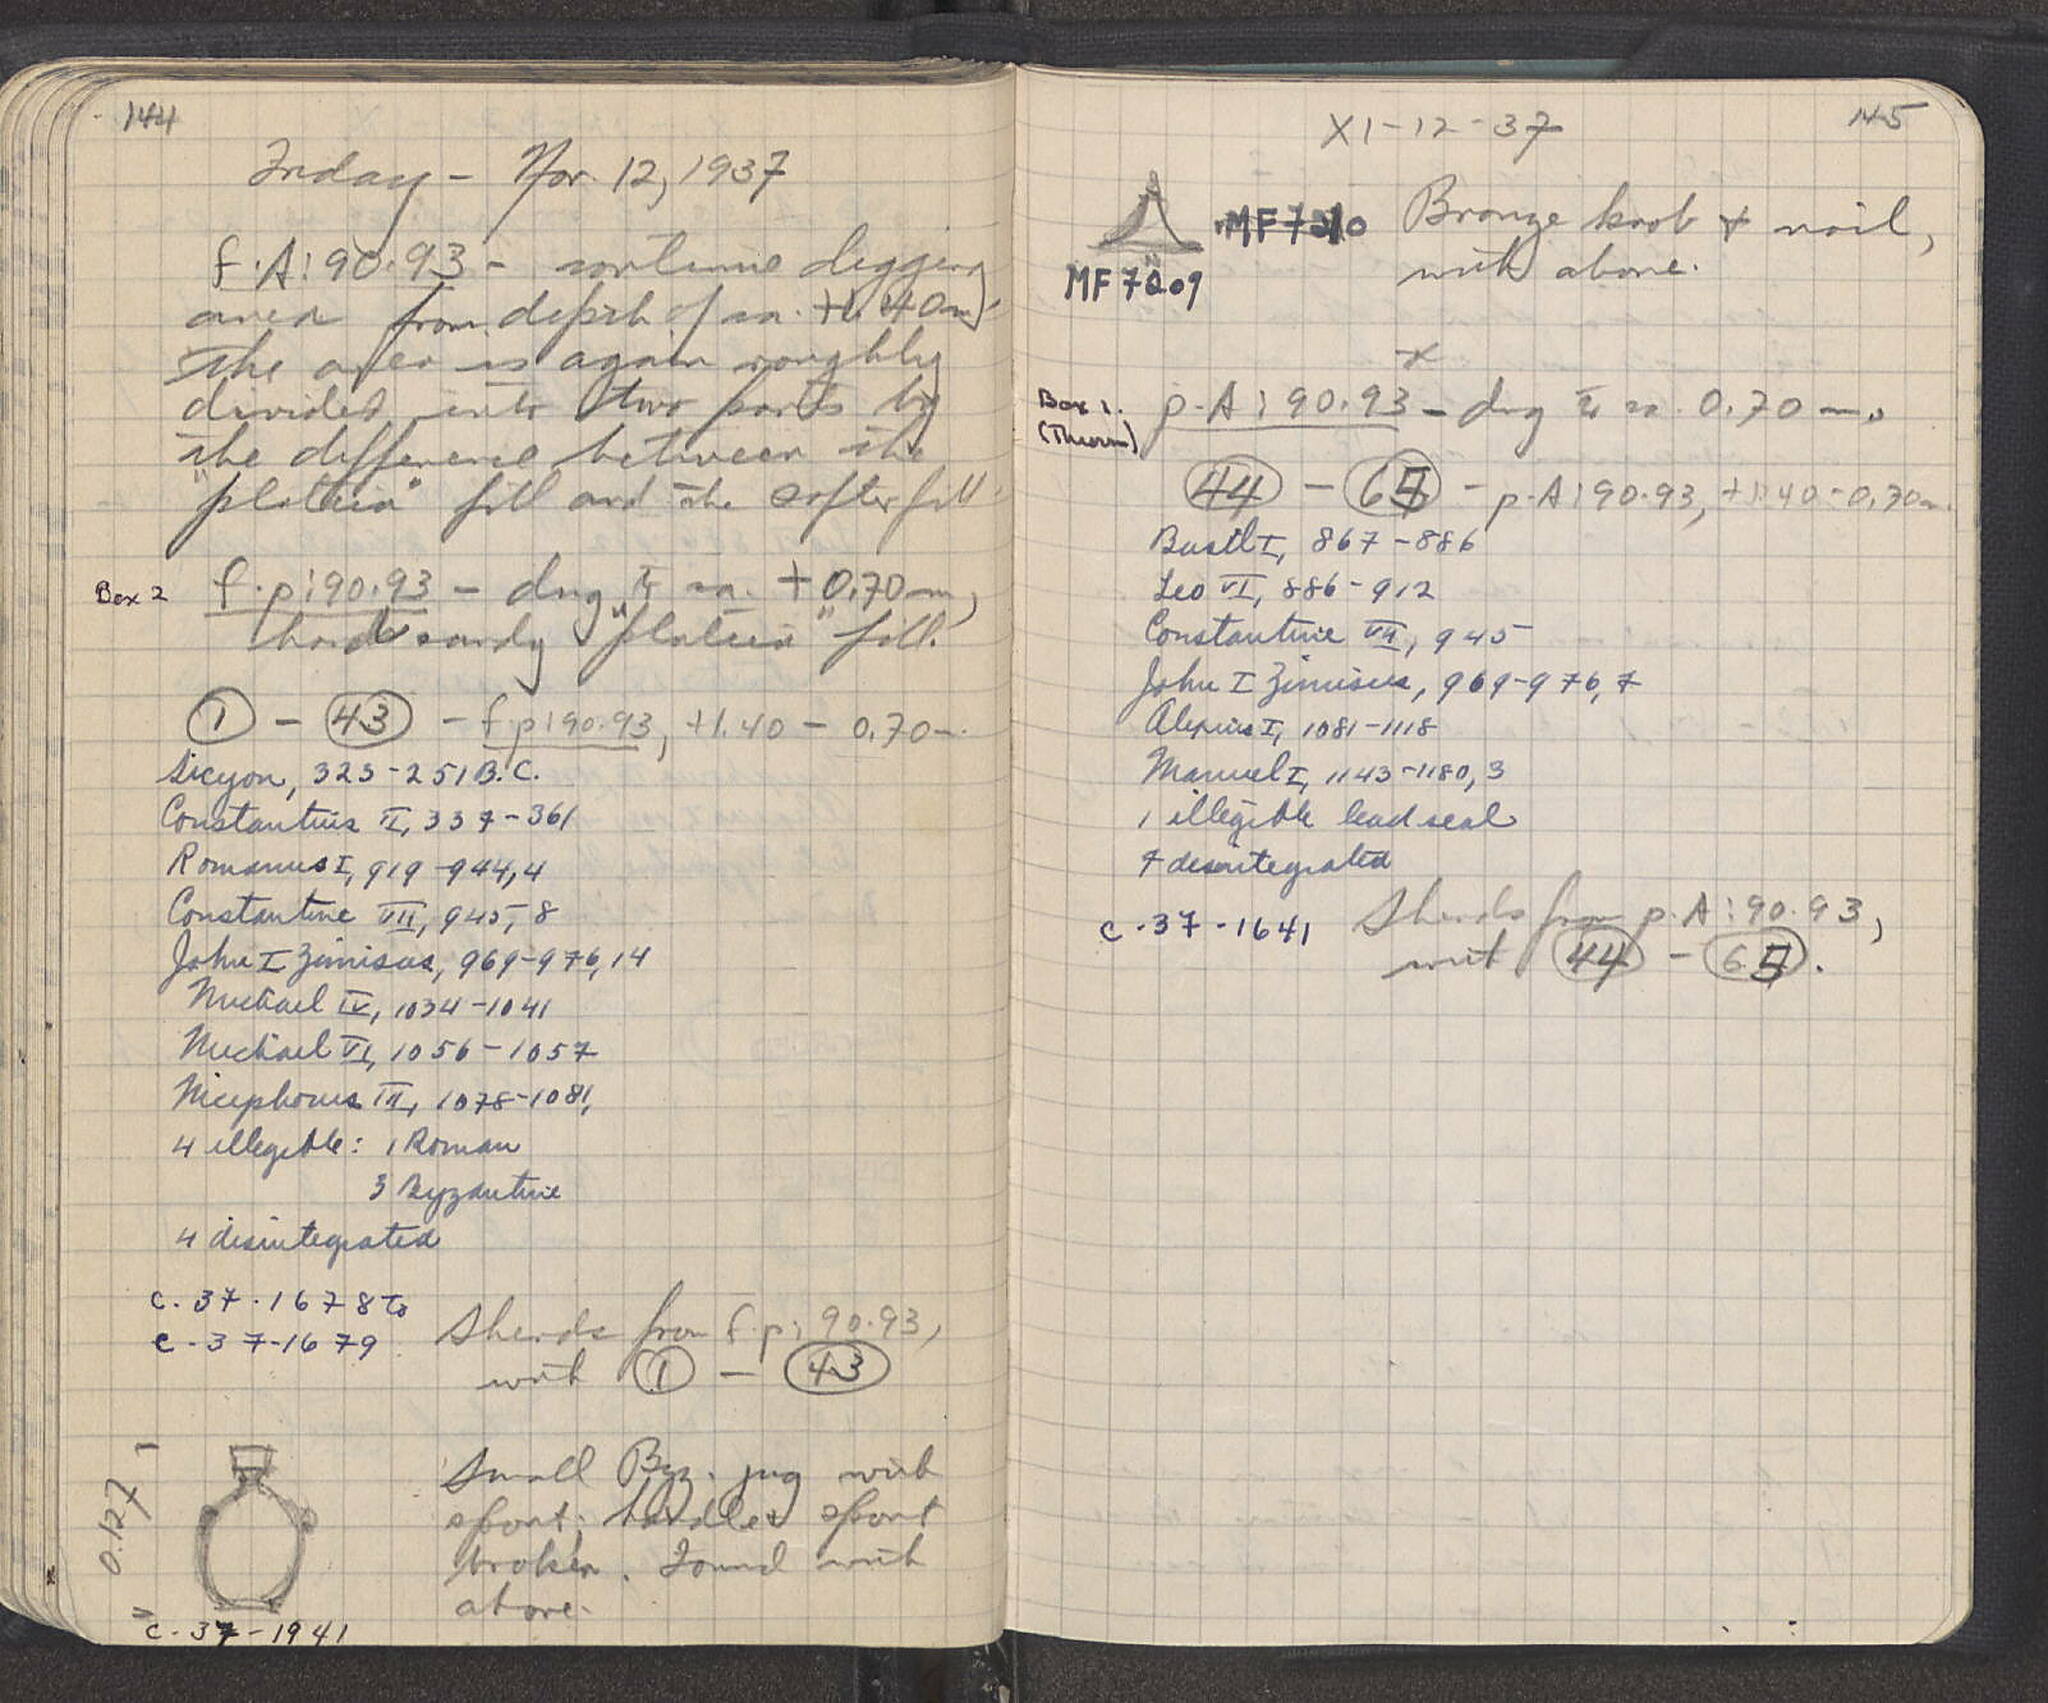 144
Friday - Nov. 12, 1937
f.A:90.93 - continue digging
area from depth of ca. +1.40m.
The area is again roughly
divided into two parts by
the difference between the
"plateia" fill and the softer fill.
Box 2 f.p:90.93 - dug to ca. +0.70m,
hard sandy "plateia" fill.
1 - 43 - f.p:90.93, +1.40 - 0.70m.
Sicyon, 323-251 B.C.
Constantius II, 337-361
Romanus I, 919-944, 4
Constantine VII, 945, 8
John I Zimisces, 969-976, 14
Michael IV, 1034-1041
Michael VI, 1056-1057
Nicephorus III, 1078-1081,
4 illegible: 1 Roman
3 Byzantine
4 disintegrated
C.37.1678 to
C.37-1679
Sherds from f.p:90.93,
with 1 - 43
Small Byz. jug with
spout; handle & spout
broken. Found with
above.
0.127
C.37-1941
145
XI-12-37
MF 7210 Bronze knob & nail,
with above.
MF 7209
x
Box 1. p.A:90.93 - dug to ca. 0.70m.
44 - 65 - p.A:90.93, +1.40-0.70m.
Basil I, 867-886
Leo VI, 886-912
Constantine VII, 945
John I Zimisces, 969-976, 7
Alexius I, 1081-1118
Manuel I, 1143-1180, 3
1 illegible lead seal
7 disintegrated
C.37-1641 Sherds from p.A:90.93,
with 44 - 65.